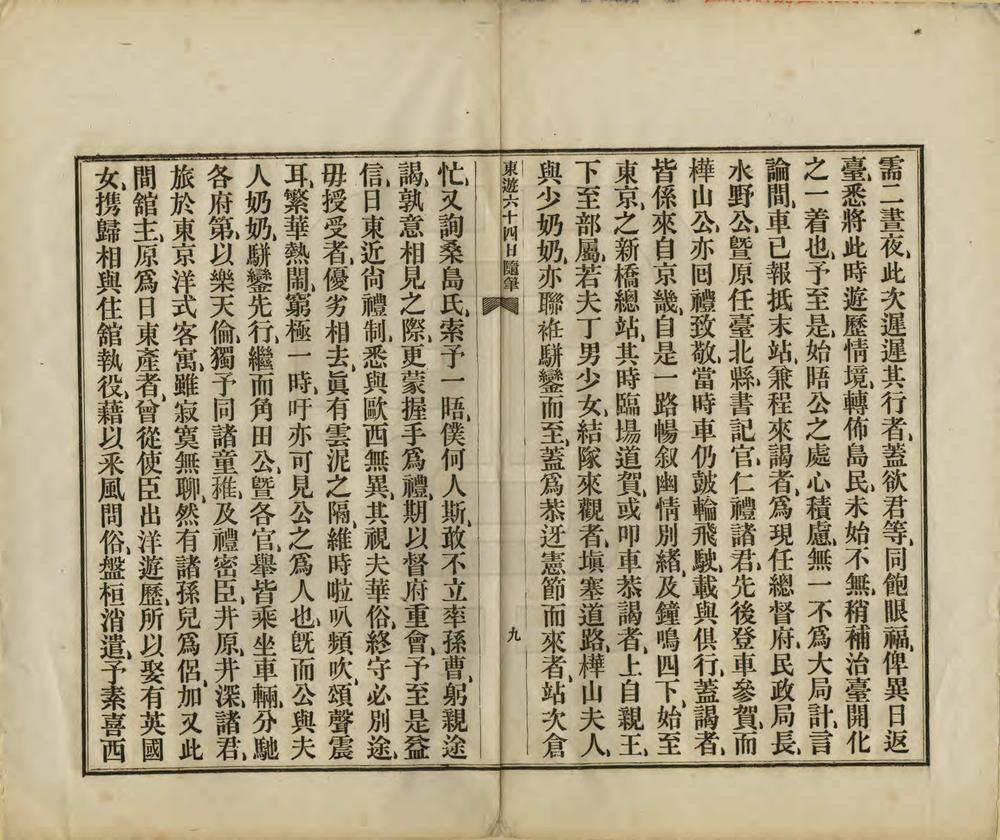 需二晝夜、此次遲遲其行者、蓋欲君等、同飽眼福、俾異日返
臺、悉將此時遊歷情境、轉佈島民、未始不無、稍補治臺開化
之一着也、予至是、始晤公之處心積慮、無一不爲大局計、言
論間、車已報抵末站、兼程來謁者、爲現任總督府、民政局長、
水野公、曁原任臺北縣、書記官仁禮諸君、先後登車參賀、而
樺山公、亦囘禮致敬、當時車仍鼓輪飛駛、載與俱行、蓋謁者、
皆係來自京畿、自是一路暢叙幽情別緒、及鐘鳴四下、始至
東京、之新橋總站、其時臨塲道賀、或叩車恭謁者、上自親王、
下至部屬、若夫丁男少女、結隊來觀者、塡塞道路、樺山夫人、
與少奶奶、亦聯袵駢鑾而至、蓋爲恭迓憲節而來者、站次倉
東遊六十四日隨筆
九
忙、又詢桑島氏、索予一晤、僕何人斯、敢不立率孫曹、躬親途
謁、孰意相見之際、更蒙握手爲禮、期以督府重會、予至是益
信、日東近尙禮制、悉與歐西無異、其視夫華俗、終守必別途、
毋授受者、優劣相去、眞有雲泥之隔、維時啦叭頻吹、頌聲震
耳、繁華熱閙、窮極一時、吁亦可見公之爲人也、旣而公與夫
人奶奶、駢鑾先行、繼而角田公、曁各官、舉皆乘坐車輛、分馳
各府第、以樂天倫、獨予同諸童稚、及禮密臣、井原、井深、諸君、
旅於東京洋式客寓、雖寂寞無聊、然有諸孫兒爲侶、加又此
間舘主、原爲日東產者、曾從使臣出洋遊歷、所以娶有英國
女、携歸相與住舘執役、藉以釆風問俗、盤桓消遣、予素喜西